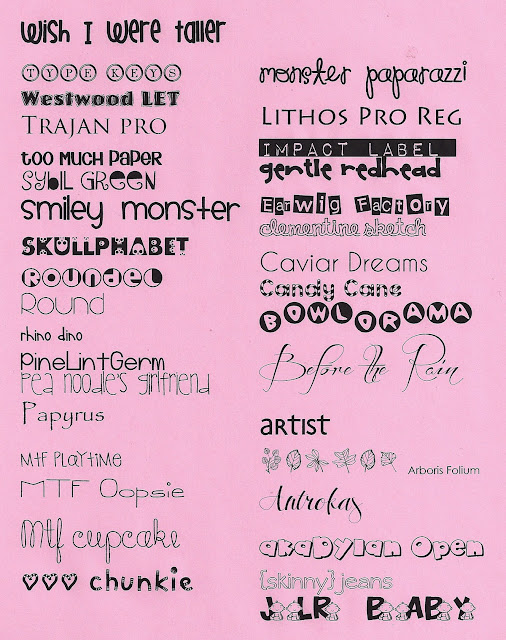 wish I were taller
TYPE KEYS
Westwood LET
TRAJAN PRO
too much paper
SYBIL GREEN
smiley monster
SKULLPHABET
Roundel
Round
rhino dino
PineLintGerm
Pea noodle's girlfriend
Papyrus
MTF PLAYTIME
MTF Oopsie
Mtf cupcake
chunkie
monster paparazzi
LITHOS PRO REG
IMPACT LABEL
gentle redhead
Earwig Factory
clementine sketch
Caviar Dreams
Candy Cane
BOWLORAMA
Before the Rain
artist
Arboris Folium
Antrokas
akaDylan Open
{skinny} jeans
JLR BABY